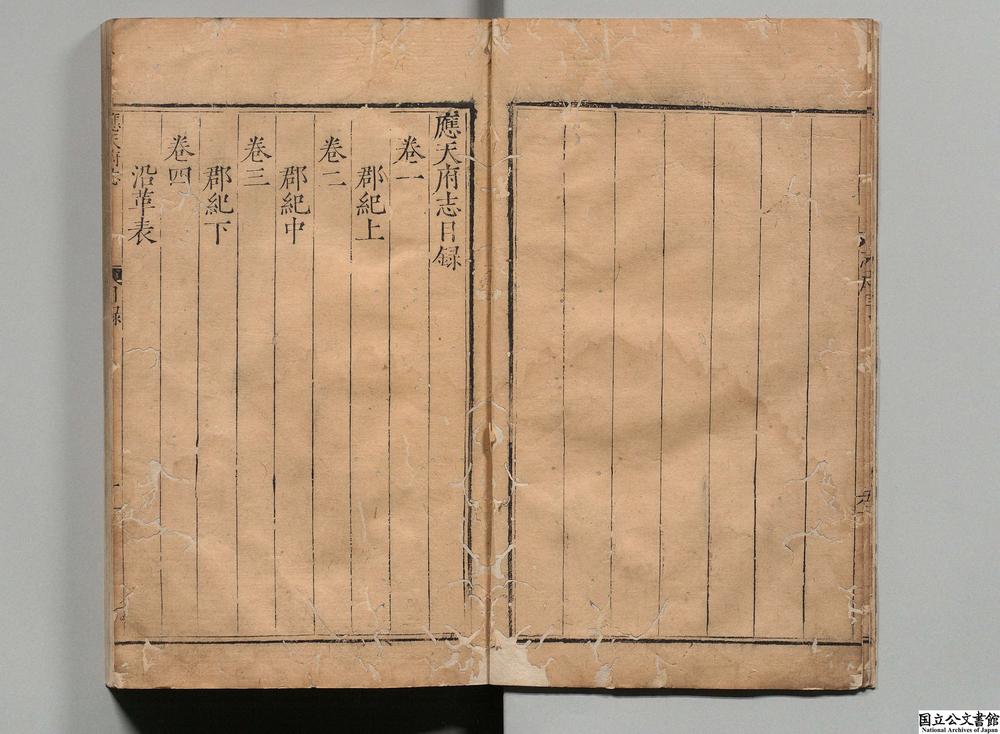 應天府志目録
卷一
郡紀上
卷二
郡紀中
卷三
郡紀下
卷四
沿革表
應天府志
目録
国立公文書館
National Archives of Japan